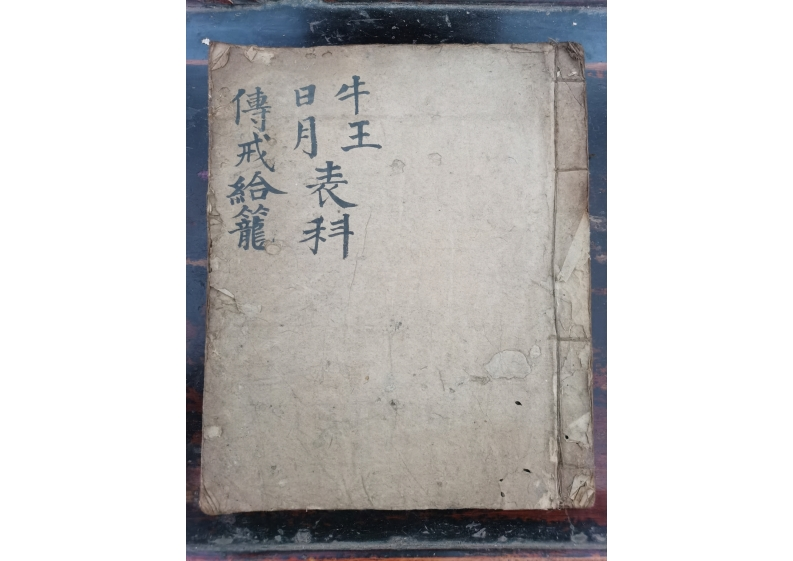 牛王
日月
表科
傳戒給籠